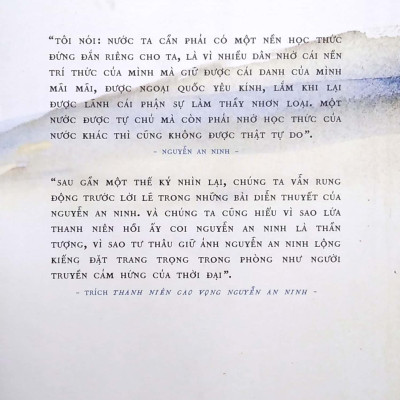 “TÔI NÓI: NƯỚC TA CẦN PHẢI CÓ MỘT NỀN HỌC THỨC
ĐỨNG ĐẮN RIÊNG CHO TA, LÀ VÌ NHIỀU DÂN NHỜ CÁI NỀN
TRÍ THỨC CỦA MÌNH MÀ GIỮ ĐƯỢC CÁI DANH CỦA MÌNH
MÃI MÃI, ĐƯỢC NGOẠI QUỐC YÊU KÍNH, LẮM KHI LẠI
ĐƯỢC LÃNH CÁI PHẬN SỰ LÀM THẦY NHƠN LOẠI. MỘT
NƯỚC ĐƯỢC TỰ CHỦ MÀ CÒN PHẢI NHỜ HỌC THỨC CỦA
NƯỚC KHÁC THÌ CŨNG KHÔNG ĐƯỢC THẬT TỰ DO”.
- NGUYỄN AN NINH -
“SAU GẦN MỘT THẾ KỶ NHÌN LẠI, CHÚNG TA VẪN RUNG
ĐỘNG TRƯỚC LỜI LẼ TRONG NHỮNG BÀI DIỄN THUYẾT CỦA
NGUYỄN AN NINH. VÀ CHÚNG TA CŨNG HIỂU VÌ SAO LỨA
THANH NIÊN HỒI ẤY COI NGUYỄN AN NINH LÀ THẦN
TƯỢNG, VÌ SAO TƯ THÂU GIỮ ẢNH NGUYỄN AN NINH LỘNG
KIẾNG ĐẶT TRANG TRỌNG TRONG PHÒNG NHƯ NGƯỜI
TRUYỀN CẢM HỨNG CỦA THỜI ĐẠI”.
- TRÍCH THANH NIÊN CAO VỌNG NGUYỄN AN NINH -